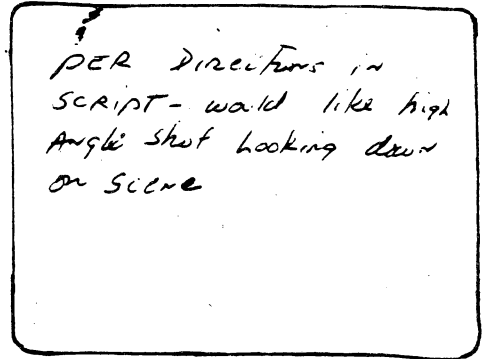 PER Directions in
SCRIPT - would like high
Angle shot Looking down
on Scene